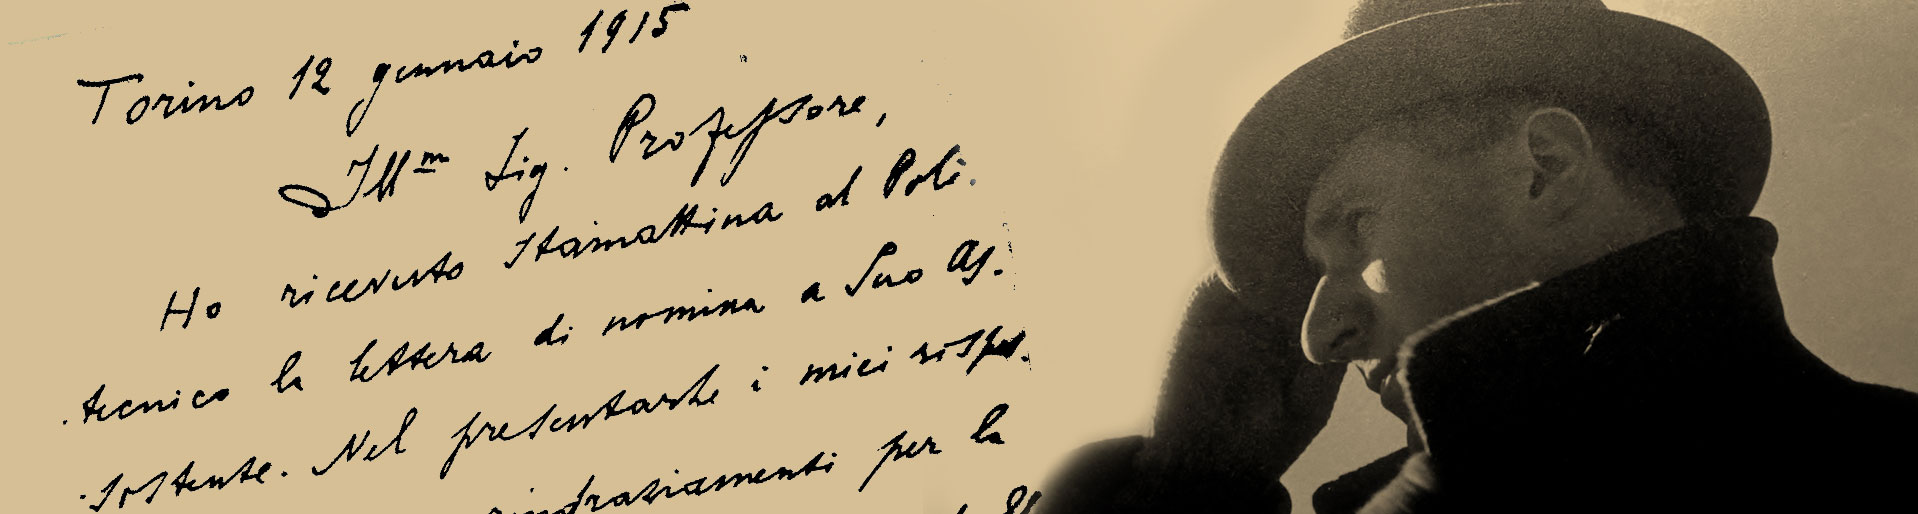 Torino 12 gennaio 1915
Ill.m Sig. Professore,
Ho ricevuto stamattina al Poli.
.tecnico la lettera di nomina a Suo As.
.sistente. Nel presentarle i miei rispet.
ringraziamenti per la